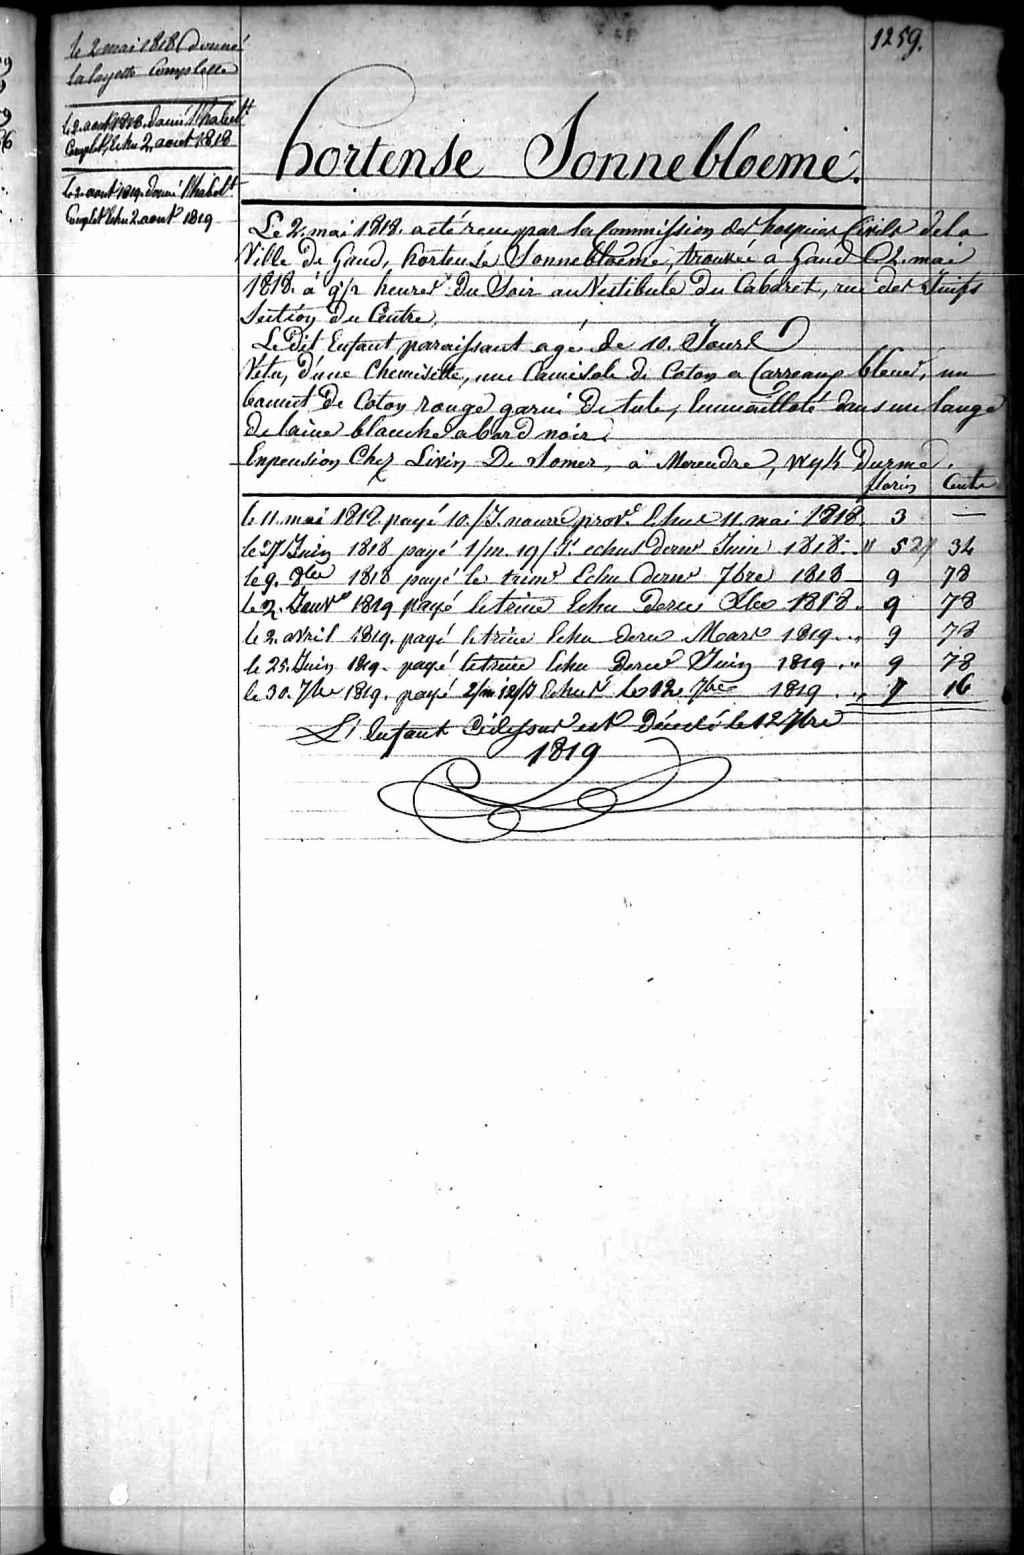 1259.
le 2 mai 1818 donné
la layette complette
le 2. aout 1818. donné l'habill.t
Complet, Echu 2, aout 1818
le 2. aout 1819. donné l'habill.t
Complet Echu 2 aout 1819
hortense Sonnebloeme.
Le 2. mai 1818. a été reçu par la Commission des hospices Civils de la
Ville de Gand, hortense Sonnebloeme, trouvée à Gand le 2. mai
1818. à 9 1/2 heures du Soir au Vestibule du Cabaret, rue des Juifs
Section du Centre,
Le Dit Enfant paraissant agé de 10. Jours
Vetu, d'une Chemisette, une Camisole de Coton a Carreaux bleus, un
bonnet De Coton rouge garni De tule, Emmailloté dans un lange
de laine blanche a bord noir.
En pension Chez Livin De Somer, à Merendre, wyk Durme.
florins Cents
le 11. mai 1818. payé 10./J. nourre prov.e Echus 11 mai 1818. 3 —
le 27 Juin 1818 payé 1/m. 19/J.s echus dern.r Juin 1818 " 5 34
le 9. 8bre 1818 payé le trim.e Echu dern.r 7bre 1818 9 78
le 2. Janv.r 1819 payé le trim Echu Dern Xbre 1818. 9 78
le 2. avril 1819. payé le trim Echu dern Mars 1819. " 9 78
le 25. Juin 1819. payé le trim Echu Dern.r Juin 1819. " 9 78
le 30. 7bre 1819. payé 2/m 12/J Echus le 12 7bre 1819. " 7 16
L'Enfant Ci dessus est Décédé le 12 7bre
1819